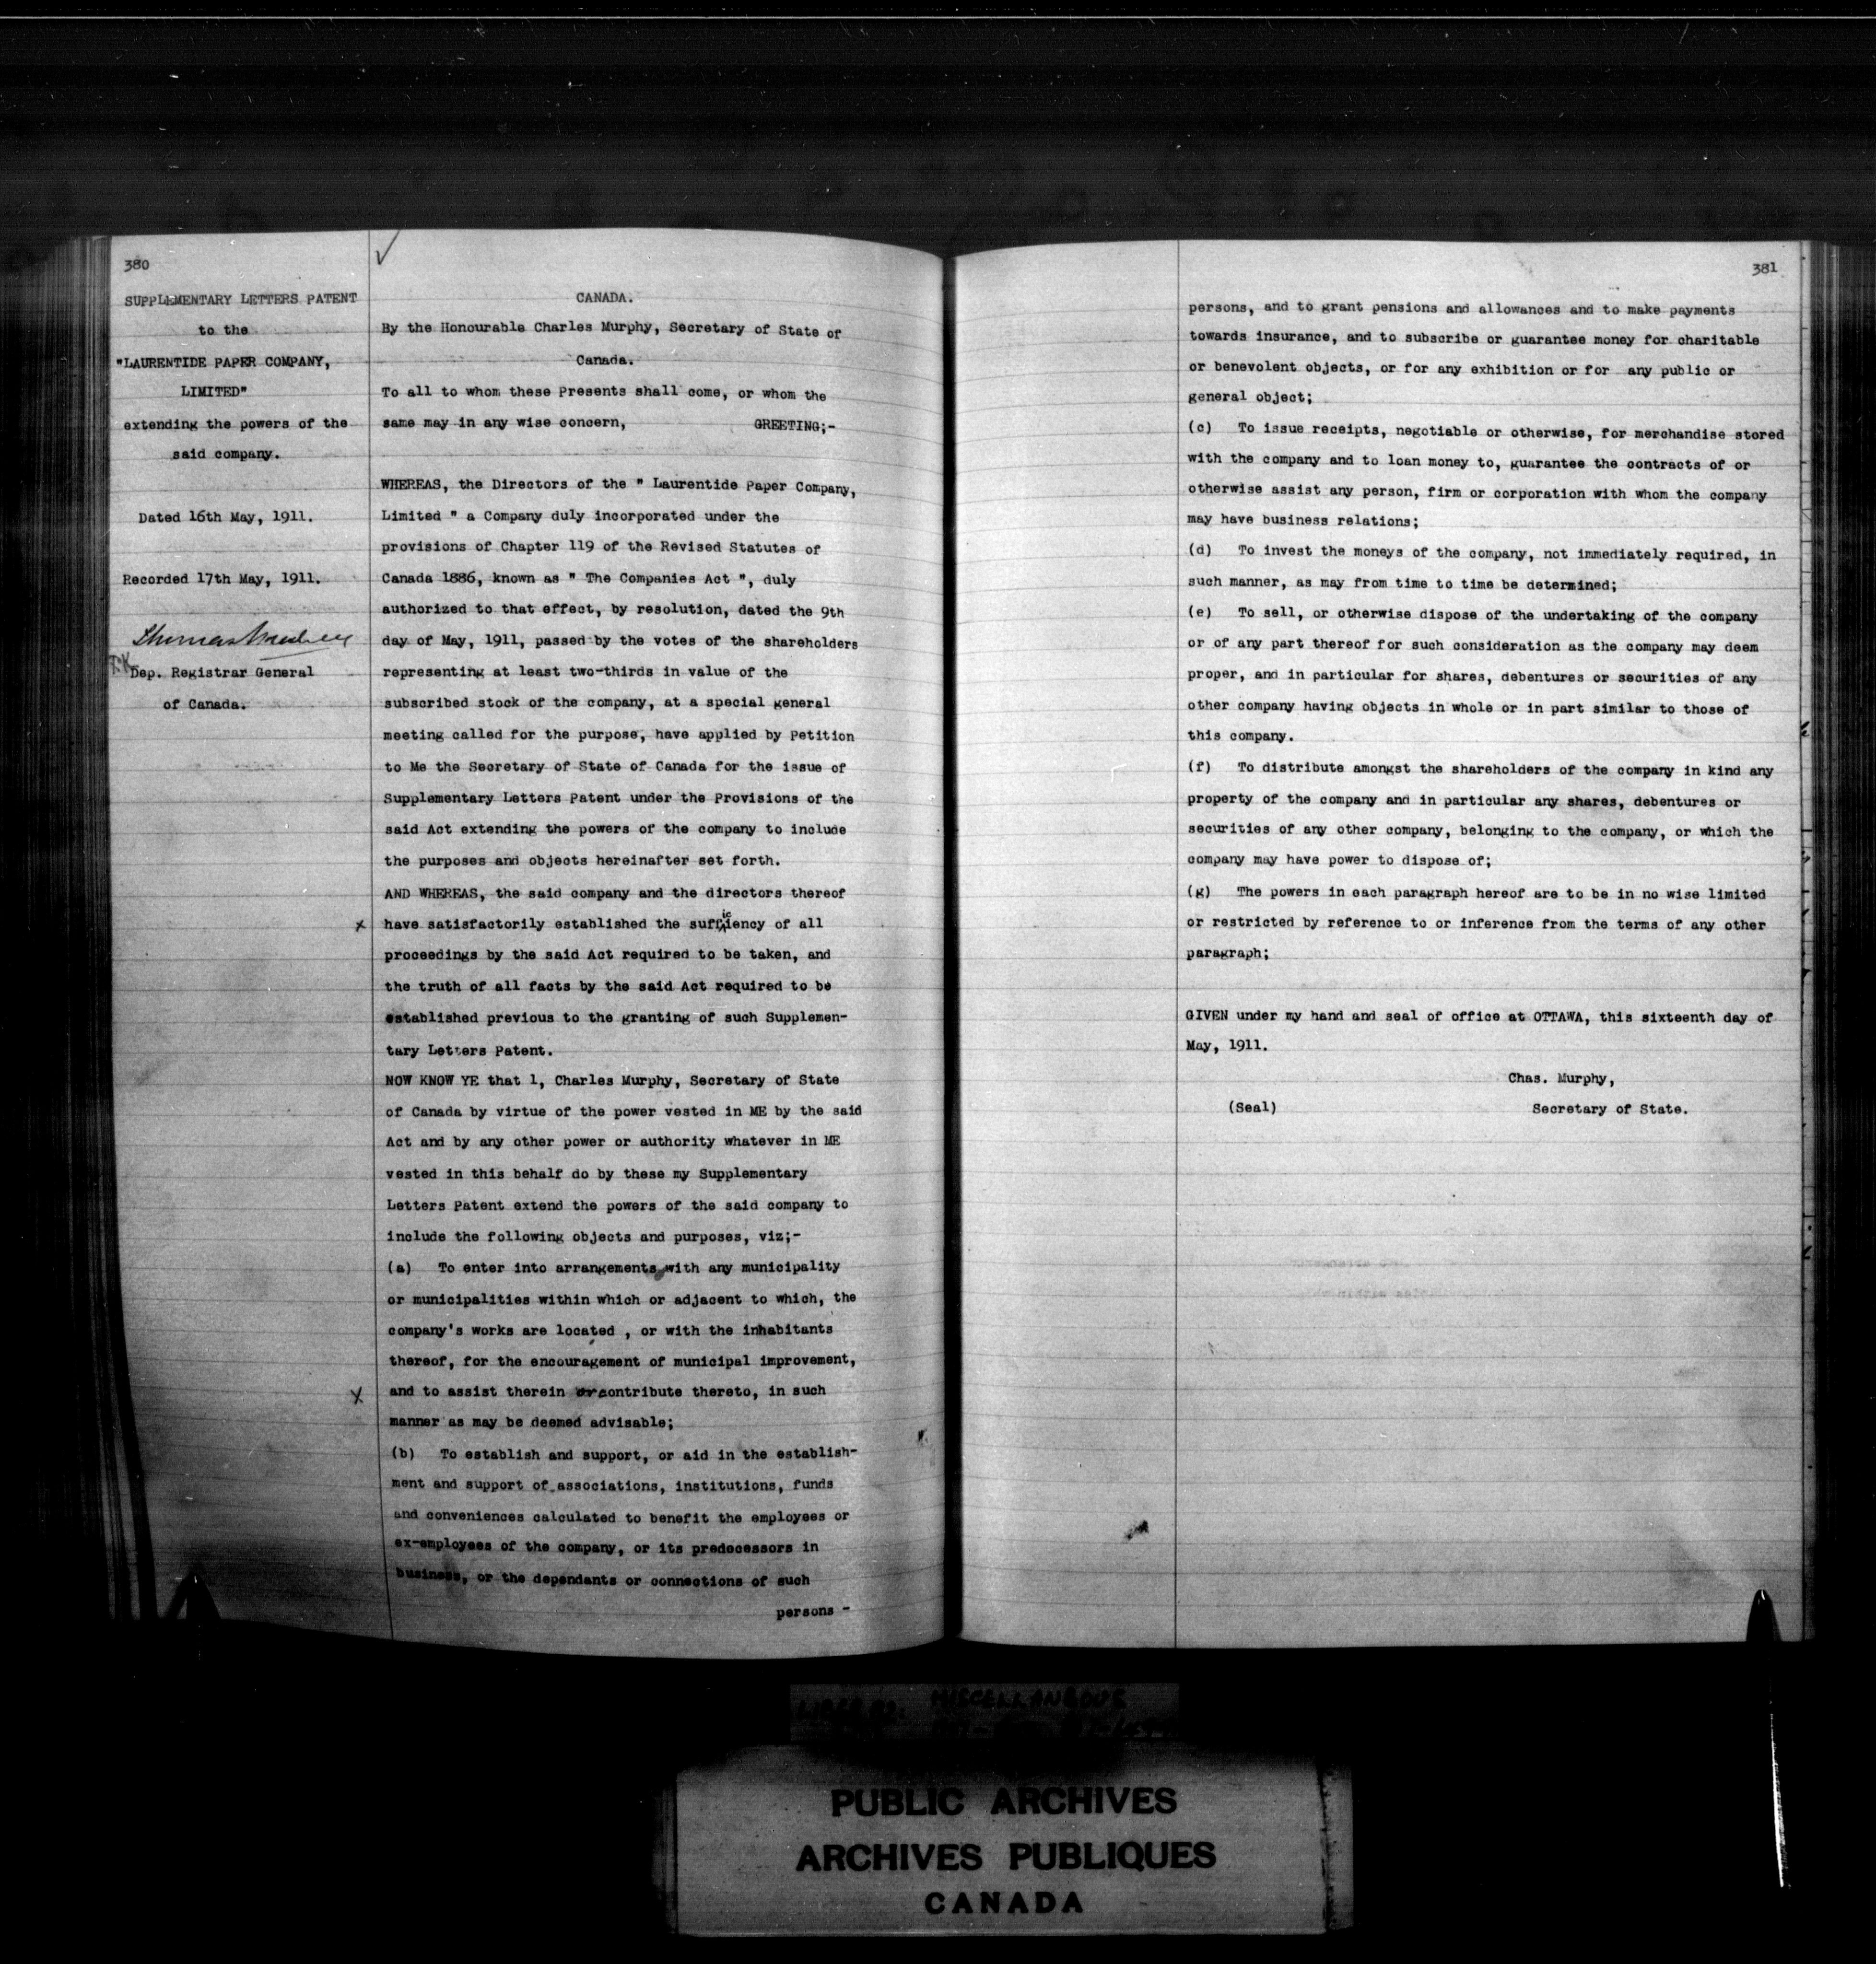 380
SUPPLEMENTARY LETTERS PATENT
to the
"LAURENTIDE PAPER COMPANY,
LIMITED"
extending the powers of the
said company.
Dated 16th May, 1911.
Recorded 17th May, 1911.
Dep. Registrar General
of Canada.
CANADA.
By the Honourable Charles Murphy, Secretary of State of
Canada.
To all to whom these Presents shall come, or whom the
same may in any wise concern, GREETING;-
WHEREAS, the Directors of the " Laurentide Paper Company,
Limited " a Company duly incorporated under the
provisions of Chapter 119 of the Revised Statutes of
Canada 1886, known as " The Companies Act ", duly
authorized to that effect, by resolution, dated the 9th
day of May, 1911, passed by the votes of the shareholders
representing at least two-thirds in value of the
subscribed stock of the company, at a special general
meeting called for the purpose, have applied by Petition
to Me the Secretary of State of Canada for the issue of
Supplementary Letters Patent under the Provisions of the
said Act extending the powers of the company to include
the purposes and objects hereinafter set forth.
AND WHEREAS, the said company and the directors thereof
x have satisfactorily established the sufficiency of all
proceedings by the said Act required to be taken, and
the truth of all facts by the said Act required to be
established previous to the granting of such Supplemen-
tary Letters Patent.
NOW KNOW YE that l, Charles Murphy, Secretary of State
of Canada by virtue of the power vested in ME by the said
Act and by any other power or authority whatever in ME
vested in this behalf do by these my Supplementary
Letters Patent extend the powers of the said company to
include the following objects and purposes, viz;-
(a) To enter into arrangements with any municipality
or municipalities within which or adjacent to which, the
company's works are located , or with the inhabitants
thereof, for the encouragement of municipal improvement,
x and to assist therein or contribute thereto, in such
manner as may be deemed advisable;
(b) To establish and support, or aid in the establish-
ment and support of associations, institutions, funds
and conveniences calculated to benefit the employees or
ex-employees of the company, or its predecessors in
business, or the dependants or connections of such
persons -
381
persons, and to grant pensions and allowances and to make payments
towards insurance, and to subscribe or guarantee money for charitable
or benevolent objects, or for any exhibition or for any public or
general object;
(c) To issue receipts, negotiable or otherwise, for merchandise stored
with the company and to loan money to, guarantee the contracts of or
otherwise assist any person, firm or corporation with whom the company
may have business relations;
(d) To invest the moneys of the company, not immediately required, in
such manner, as may from time to time be determined;
(e) To sell, or otherwise dispose of the undertaking of the company
or of any part thereof for such consideration as the company may deem
proper, and in particular for shares, debentures or securities of any
other company having objects in whole or in part similar to those of
this company.
(f) To distribute amongst the shareholders of the company in kind any
property of the company and in particular any shares, debentures or
securities of any other company, belonging to the company, or which the
company may have power to dispose of;
(g) The powers in each paragraph hereof are to be in no wise limited
or restricted by reference to or inference from the terms of any other
paragraph;
GIVEN under my hand and seal of office at OTTAWA, this sixteenth day of
May, 1911.
Chas. Murphy,
(Seal) Secretary of State.
MISCELLANEOUS
PUBLIC ARCHIVES
ARCHIVES PUBLIQUES
CANADA